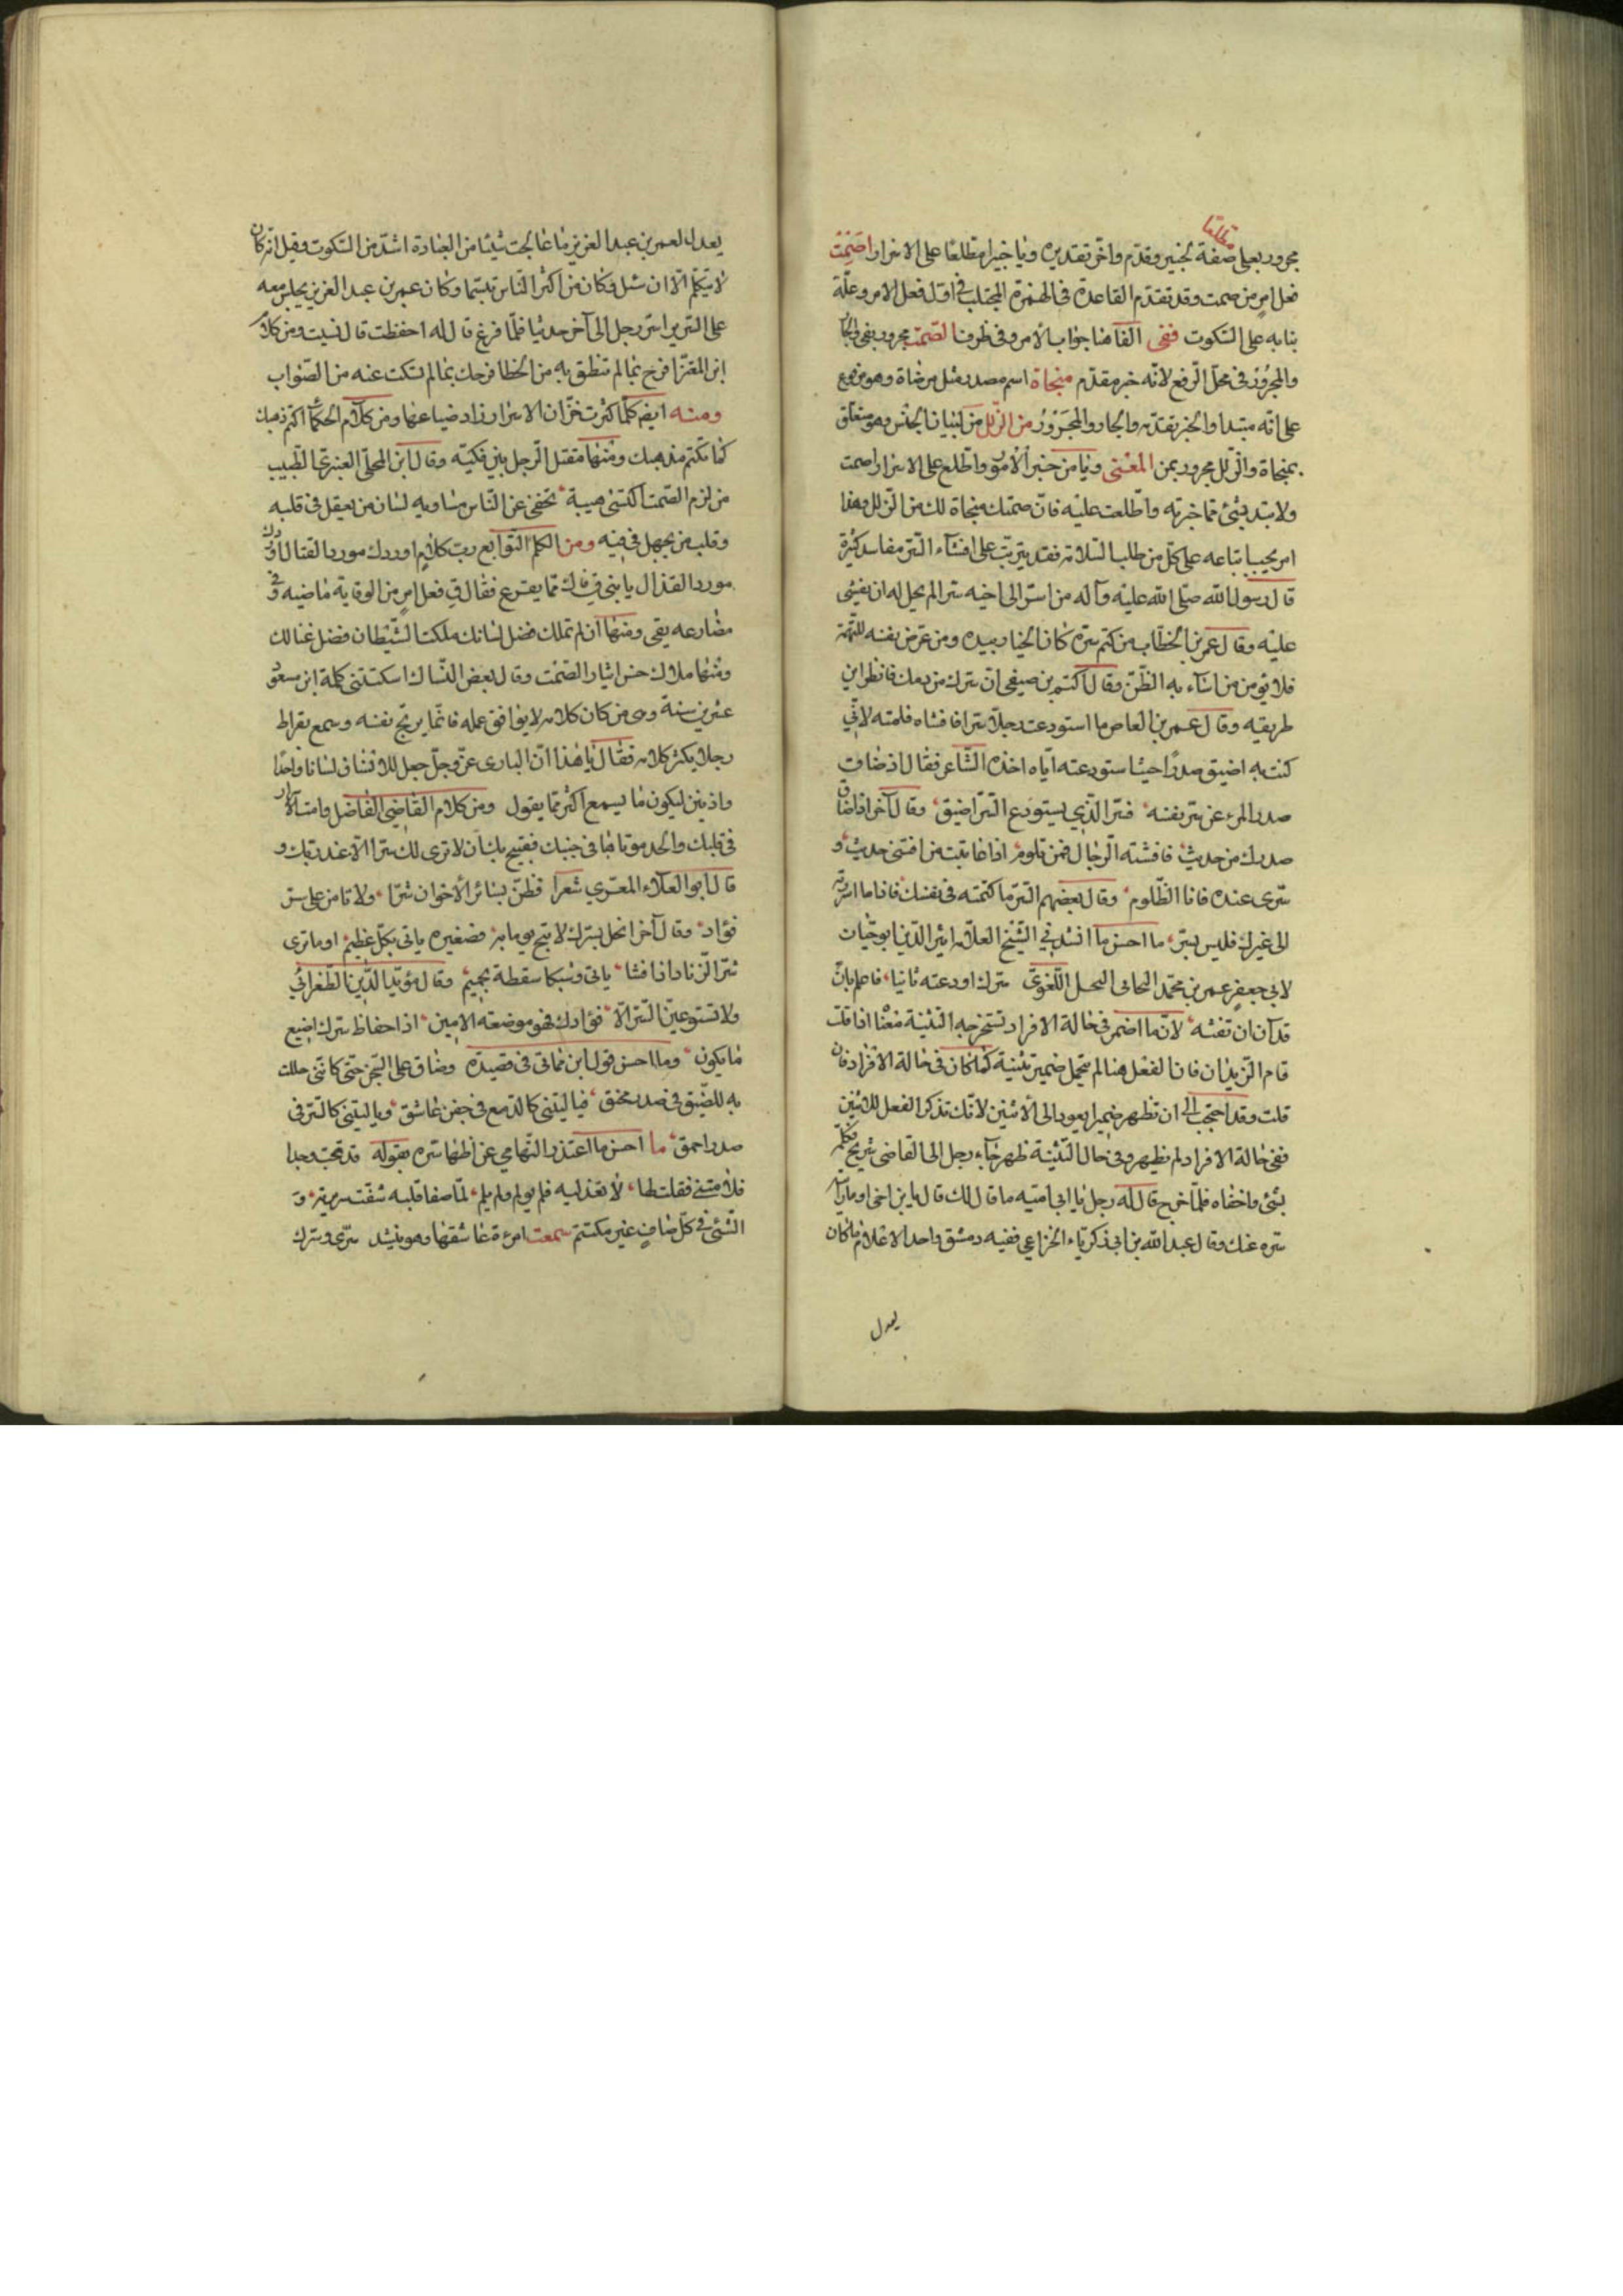 مطلعا
مجرور بعلى صفة لخبير وقدّم واخّر تقديره ويا خبيرا مطّلعًا على الاسرار اصمت
فعل امرٍ من صمت وقد تقدّم القاعدة فى الهمزة المجتلب فى اوّل فعل الامر وعلّة
بنائه على السّكوت ففى الفآء هنا جواب الأمر وفى ظرف الصّمت مجرور بفى والجآ
والمجرور فى محلّ الرّفع لانّه خبر مقدّم منجاة اسم مصدر مثل مرضاة وهو مرفوع
على انّه مبتدأ والخبر تقدّم والجار والمجرور من الزّلل من لبيان الجنس وهو متعلّق
بمنجاة والزّلل مجرور بمن المعنى ويا من خبر الأمور واطّلع على الاسرار اصمت
ولا تبد بشئ ممّا خبرته واطّلعت عليه فانّ صمتك منجاة لك من الزّلل وهذا
امر يجب اتباعه على كلّ من طلب السّلامة فقد يترتّب على افشآء السّرّ مفاسد كثيرة
قال رسول الله صلّى الله عليه وآله من اسرّ الى اخيه سرّا لم يحلّ له ان يفشى
عليه وقال عمر بن الخطّاب من كتم سرّه كان الخيار بيده ومن عرّض نفسه للتّهمة
فلا يؤمن من اسآء به الظّنّ وقال اكثم بن صيفى انّ سرّك من دمك فانظر اين
طريقيه وقال عمر بن العاص ما استودعت رجلا سرّا فافشاه فلمته لانّى
كنت به اضيق صدرًا حيث استودعته ايّاه اخذه الشّاعر فقال اذ ضاق
صدر المرء عن سرّ نفسه فسرّ الّذى يستودع السّرّ اضيق وقال آخر اذا ضاق
صدرك من حديث فافشته الرّجال فمن تلوم اذا عاتبت من افشى حديث و
سرّى عنده فانا الظّلوم وقال بعضهم السّرّ ما كتمته فى نفسك فاذا ما اسررته
الى غيرك فليس بسرّ ما احسن ما انشدنى الشّيخ العلّامة اثير الدّين ابو حيّان
لابى جعفر عمر بن محمّد اللّغوىّ سرّك اودعته ثانيا فاعلم بانّ
قد آن ان تفشه لانّ ما اضمر فى حالة الافراد تستخرجه التّثنية معناه اذا قلت
قام الزّيدان فانّ الفعل هنا لم يتحمّل ضمير تثنية كما كان فى حالة الافراد فان
قلت وقد احتجب الى ان تظهر ضميرا يعود الى الأثنين لانّك تذكر الفعل للاثنين
ففى حالة الافراد لم يظهر وفى حال التّثنية ظهر جآء رجل الى القاضى شريح فكلّمه
بشئ واخفاه فلمّا خرج قال له رجل يا ابا اميّه ما قال لك قال يابن اخى اوما رايته
سرّه عنك وقال عبد الله بن ابى زكريّاء الخزاعى فقيه دمشق واحد الاعلام ما كان
يعدل
يعدل لعمر بن عبد العزيز ما عالجت شيئا من العبادة اشدّ من السّكوت وقيل انّه كان
لا يتكلّم الّا ان سئل وكان من اكثر النّاس تبسّما وكان عمر بن عبد العزيز يجلس معه
على السّرير اسرّ رجل الى آخر حديثا فلمّا فرغ قال له احفظت قال نسيت ومن كلام
ابن المعتزّ افرح بما لم تنطق به من الخطا فرحك بما لم تسكت عنه من الصّواب
ومنه ايضا كلّما كثرت خزّان الاسرار زاد ضياعها ومن كلام الحكمآء اكتم ذهبك
كما تكتم مذهبك ومنها مقتل الرّجل بين فكّيه وقال ابن المحلّى العنبرى الطّبيب
من لزم الصّمت اكتسى هيبة تخفى عن النّاس مساويه لسان من يعقل فى قلبه
وقلب من يجهل فى فيه ومن الكلم النّوابغ ربّ كلامٍ اوردك مورد القتال اوردك
مورد القذال يا بنى قِ فاك ممّا يقرع فقال قِ فعل امرٍ من الوقاية ماضيه وقى
مضارعه يقى ومنها ان لم تملك فضل لسانك ملكت الشّيطان فضل عنانك
ومنها ملاك حسن ايثار الصّمت وقال بعض النّساك اسكتتنى كلمة ابن مسعود
عشرين سنة وهى من كان كلامه لا يوافق عمله فانّما يوبّخ نفسه وسمع بقراط
رجلا يكثر كلامه فقال يا هذا انّ البارى عزّ وجلّ جعل للانسان لسانا واحدًا
واذنين ليكون ما يسمع اكثر ممّا يقول ومن كلام القاضى الفاضل وامتا الاسرار
فى قلبك والحد موتاها فى جنبك فقبيح بلسان لا ترى لك سرّا الّا عند ربّك و
قال ابو العلآء المعرّى شعرا فظنّ بسائر الأخوان شرّا ولا تامن على سرّ
فؤاد وقال آخر ابخل بسرّك لا تبح يوما به فصغيره ياتى بكلّ عظيم اوما ترى
سرّ الزّناد اذا فشا ياتى وشيكا سقطة بجحيم وقال مؤيّد الدّين الطّغرائى
ولا تستودعنّ السّرّ الّا فؤادك فهو موضعه الامين اذا حفاظ سرّك اضيع
ما يكون وما احسن قول ابن مماتى فى قصيدة وضاق على السّجن حتّى كانّنى حللت
به للضّيق فى صدر محنق فيا ليتنى كالدّمع فى جفن عاشق ويا ليتنى كالسّرّ فى
صدر احمق ما احسن ما اعتذر التّهامى عن اظهار سرّه بقوله قد بحت وجدا
فلامتنى فقلت لها لا تعذليه فلم يولم ولم يلم لمّا صفا قلبه شفّت سريرته و
الشّئ فى كلّ صافٍ غير مكتتم سمعت امرءة عاشقها وهو ينشد سرّى وسرّك